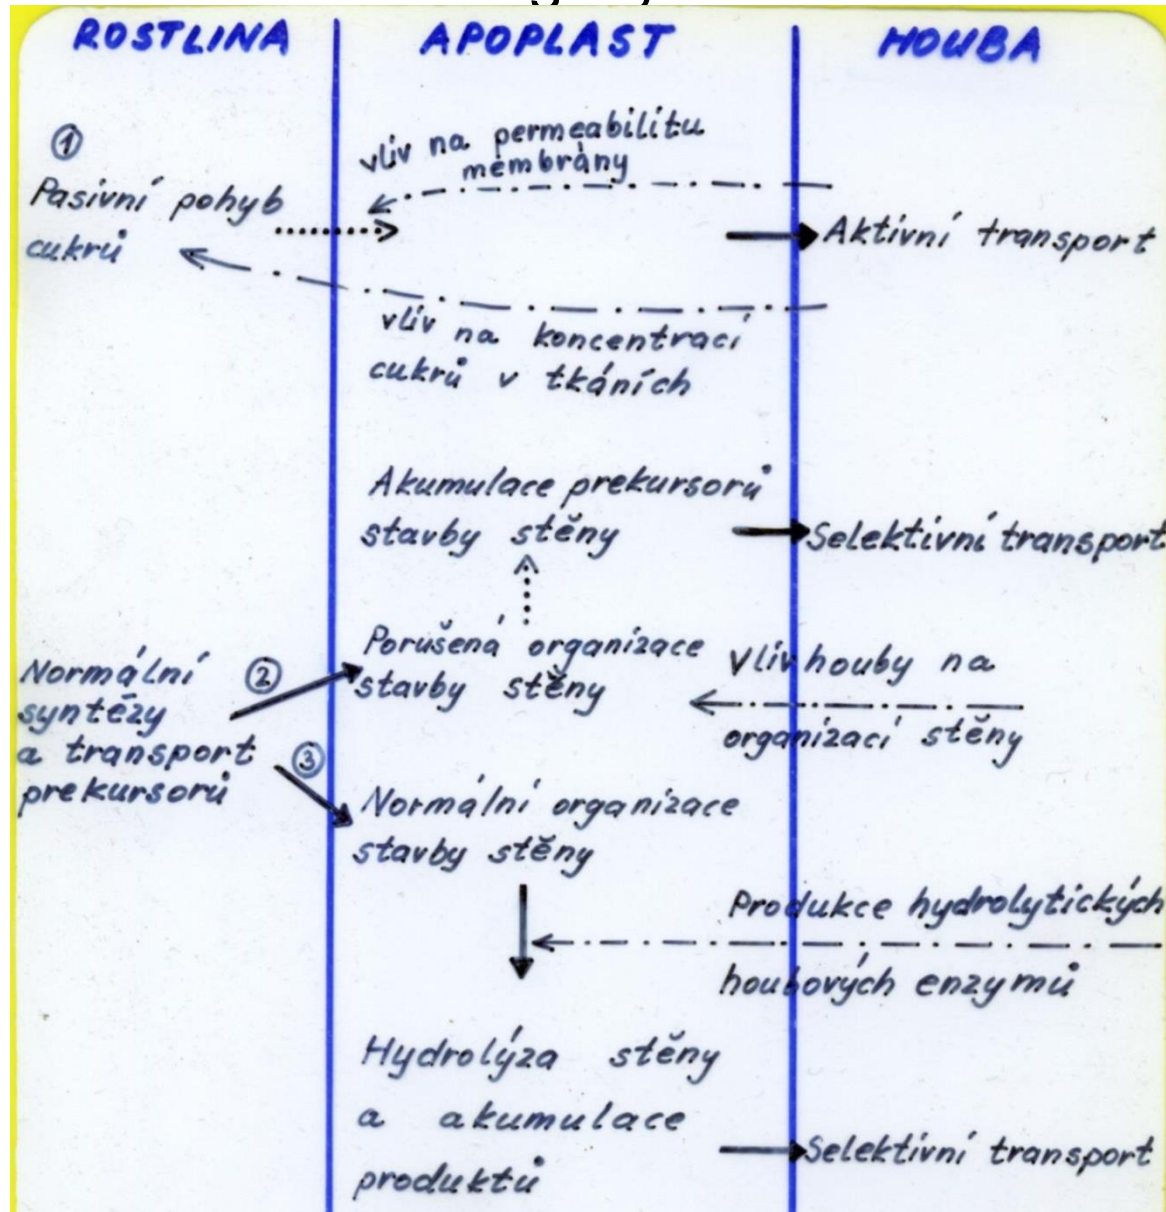 ROSTLINA
APOPLAST
HOUBA
①
Pasivní pohyb
cukrů
vliv na permeabilitu
membrány
Aktivní transport
vliv na koncentraci
cukrů v tkáních
Akumulace prekursorů
stavby stěny
Selektivní transport
Normální
syntézy
a transport
prekursorů
②
③
Porušená organizace
stavby stěny
Vliv houby na
organizaci stěny
Normální organizace
stavby stěny
Produkce hydrolytických
houbových enzymů
Hydrolýza stěny
a akumulace
produktů
Selektivní transport